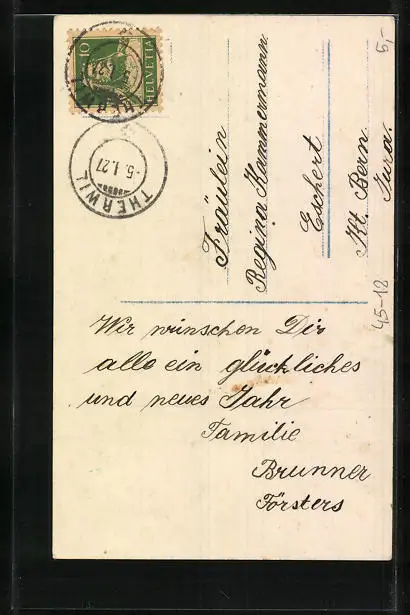 10
HELVETIA
THERWIL
-5.1.27
Fräulein
Regina Hammermann
Eschert
Kt. Bern
Jura.
5,-
45-18
Wir wünschen Dir
alle ein glückliches
und neues Jahr
Familie
Brunner
Försters